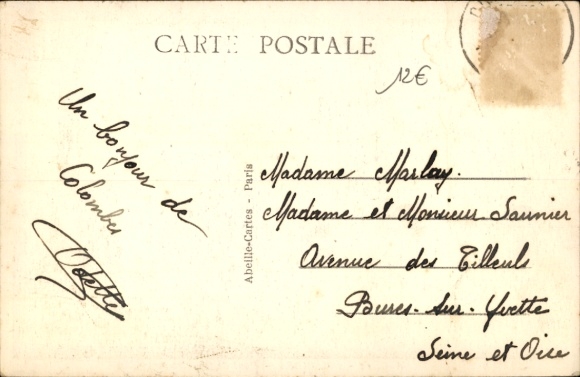 CARTE POSTALE
12€
Un bonjour de
Colombes
Odette
Abeille-Cartes - Paris
Madame Marlay.
Madame et Monsieur Saunier
Avenue des Tilleuls
Bures-sur-Yvette
Seine et Oise